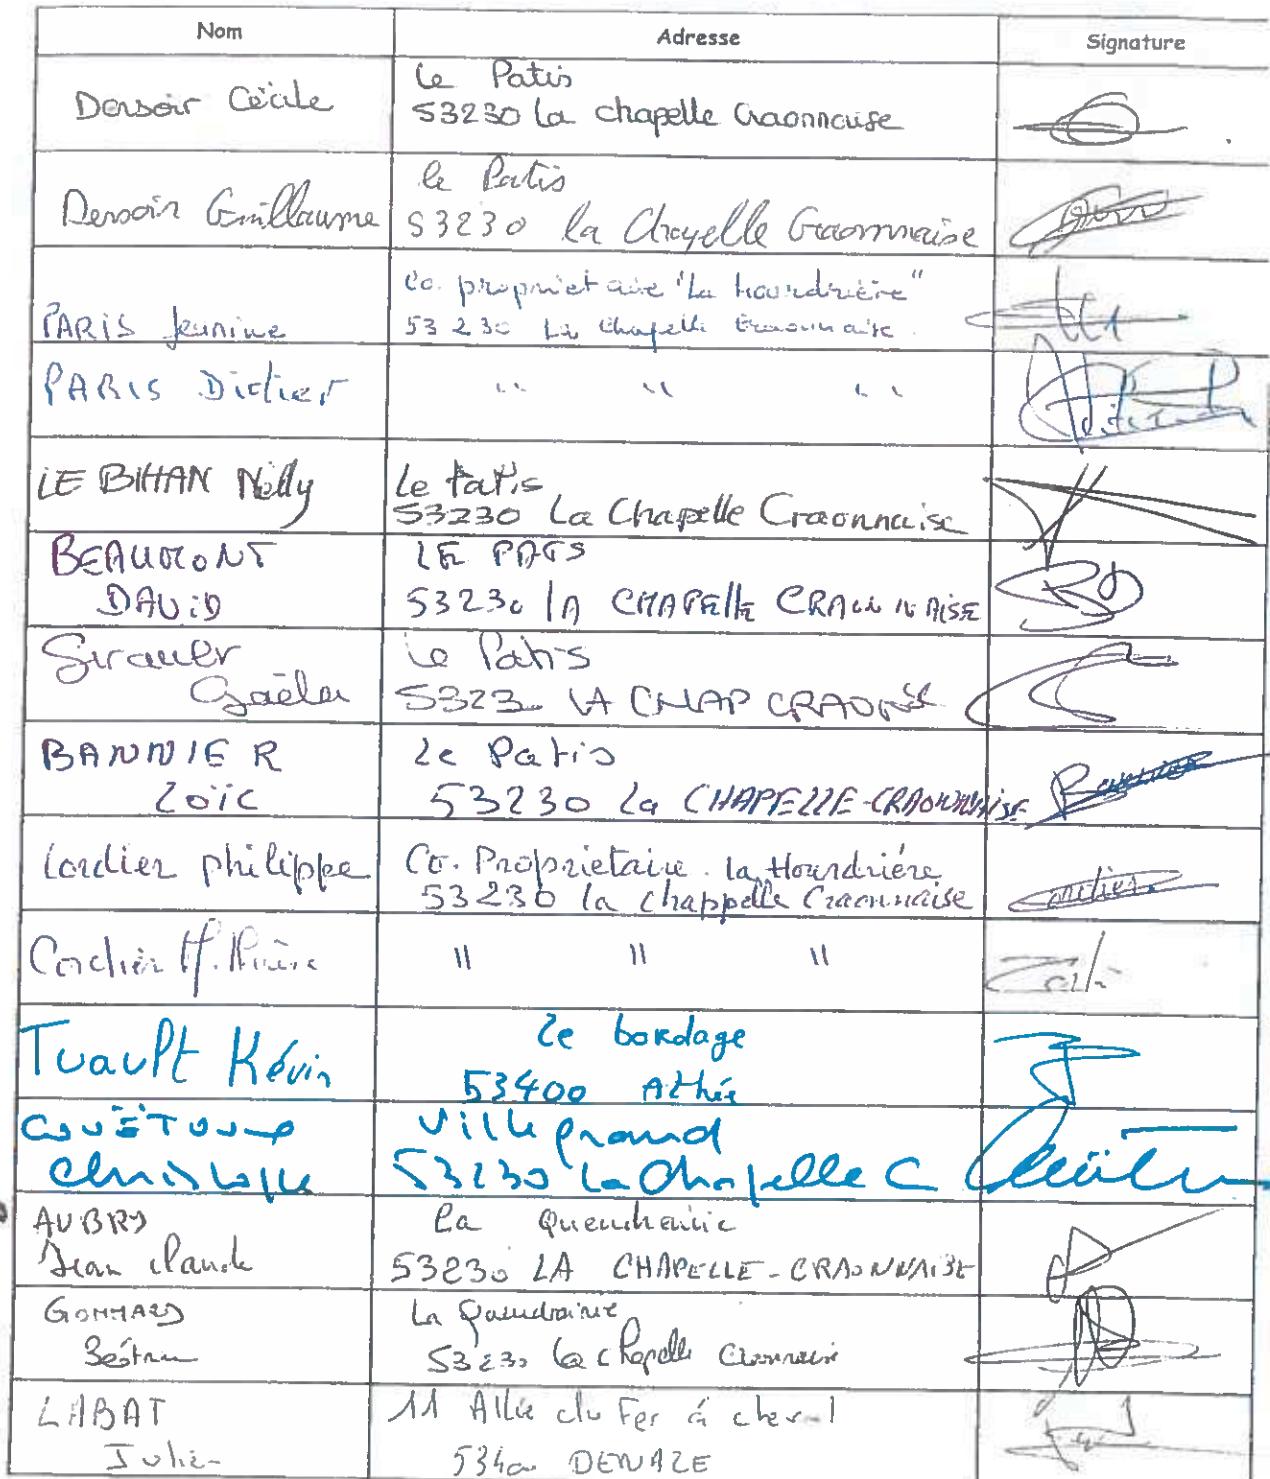 Nom Adresse Signature
Dersoir Cécile
Le Patis
53230 la chapelle Craonnaise
Dersoir Guillaume
le Patis
53230 la Chapelle Craonnaise
PARIS Jeanine
Co. propriétaire "La hourdrière"
53 230 La Chapelle Craonnaise
PARIS Didier
" " "
LE BIHAN Nelly
Le Patis
53230 La Chapelle Craonnaise
BEAUMONT
DAViD
LE PATiS
53230 lA CHAPElle CRAONNAiSE
Gaëla
Le Patis
5323 LA CHAP CRAONSE
BANNIER
Loïc
Le Patis
53230 La CHAPELLE-CRAONNAISE
Cordier philippe
Co. Proprietaire. la Hourdrière
53230 la chappelle Craonnaise
Cordier
" " "
Tuault Kévin
Le bordage
53400 Athée
Christophe
Ville grand
53230 La Chapelle C
AUBRY
Jean Claude
La
53230 LA CHAPELLE-CRAONNAISE
GOMMARD
La
53230 la Chapelle
LABAT
Julien
11 Allée du Fer à cheval
53400 DENAZE